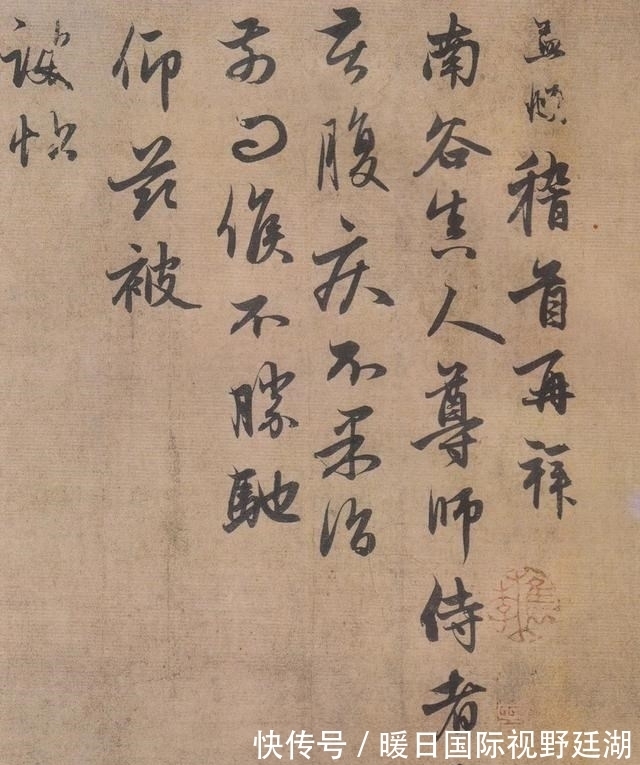 孟頫稽首再拜
南谷真人尊師侍者
苦腹疾不果詣
前問候不勝馳
仰茲被
誨帖
快传号 / 暖日国际视野廷湖